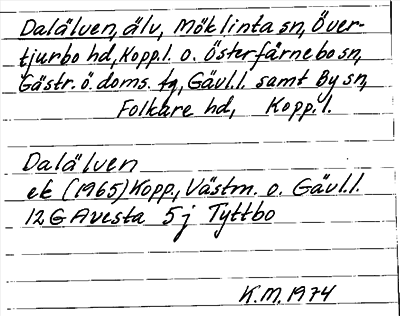 Dalälven, älv, Möklinta sn, Över-
tjurbo hd, Kopp.l. o. Österfärnebo sn,
Gästr. ö. doms. tg, Gävl.l. samt By sn,
Folkare hd, Kopp. l.
Dalälven
ek (1965) Kopp., Västm. o. Gävl.l.
12 G Avesta 5j Tyttbo
K.M. 1974